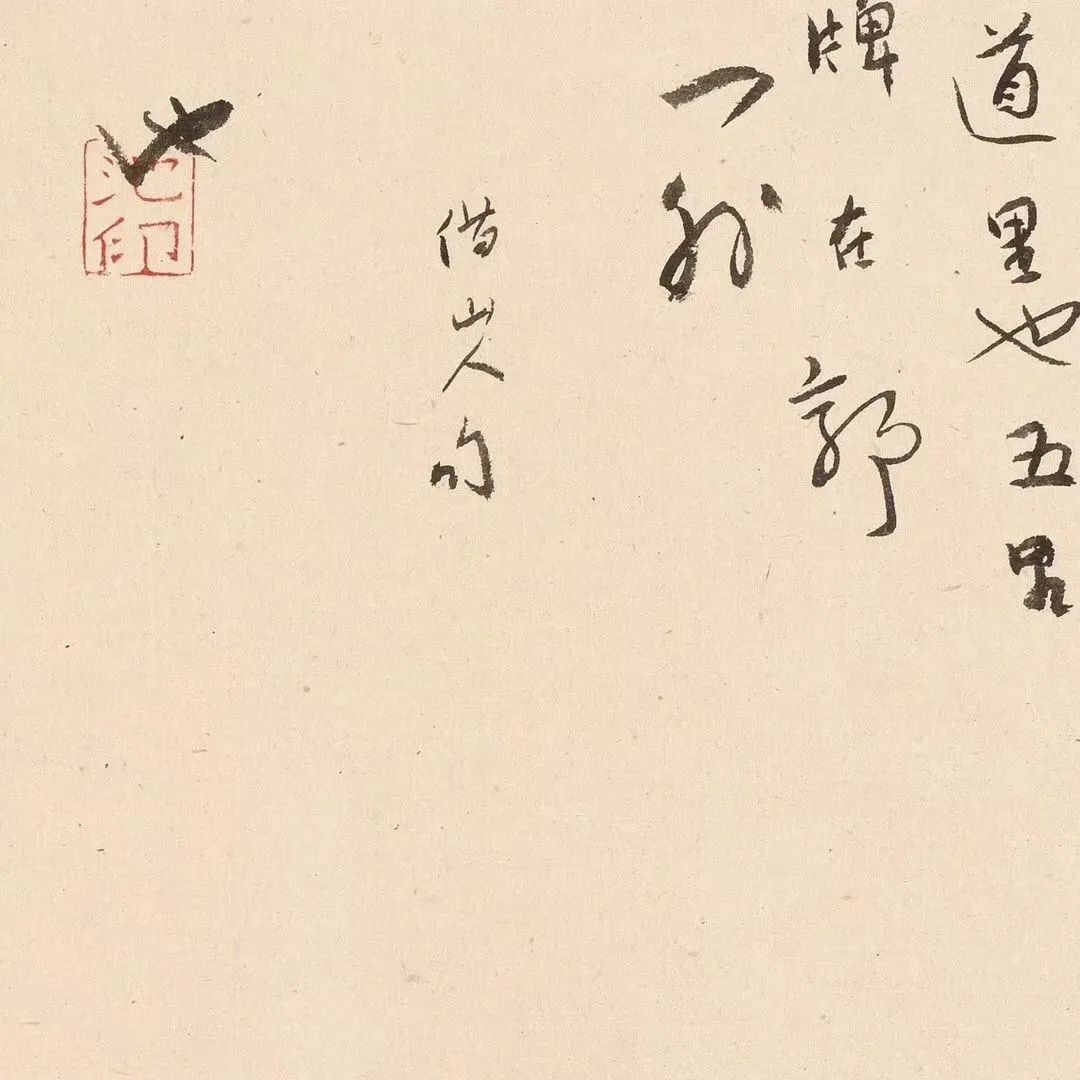 道里也五
牌在郭
一
借山人句
印